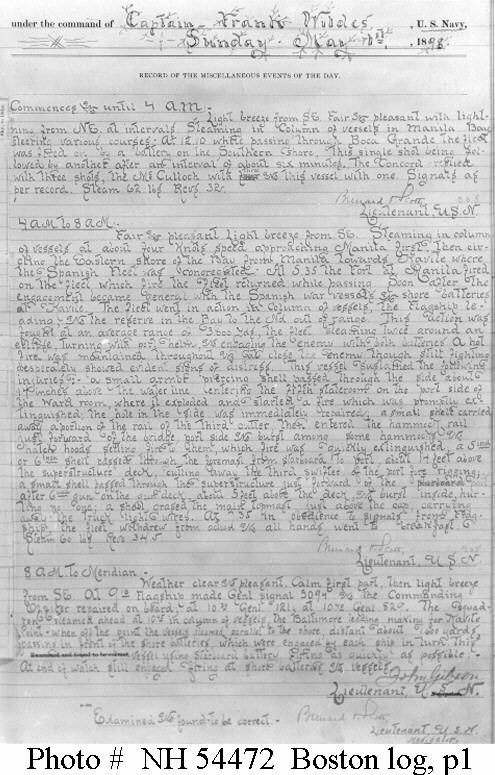 under the command of Captain Frank Wildes, U. S. Navy,
Sunday May 1st, 1898.
RECORD OF THE MISCELLANEOUS EVENTS OF THE DAY.
Commences & until 4 A.M:-
Light breeze from SE. Fair & pleasant with light-
ning from NE. at intervals. Steaming in column of vessels in Manila Bay
steering various courses. At 12.10 while passing through Boca Grande the fleet
was fired on by a battery on the Southern shore. This single shot being fol-
lowed by another after an interval of about six minutes. The Concord replied
with three shots, the McCulloch with three & this vessel with one. Signals as
per record. Steam 62 lbs. Revs 32.
Bernard O. Scott,
Lieutenant, U.S.N.
4 AM to 8 AM:-
Fair & pleasant Light breeze from SE. Steaming in column
of vessels at about four knots speed approaching Manila first, then cir-
cling the Eastern shore of the Bay from Manila towards Cavite where
the Spanish Fleet was congregated. At 5.35 the Fort at Manila fired
on the fleet which fire the fleet returned while passing. Soon after the
engagement became general with the Spanish war vessels & shore batteries
at Cavite. The fleet went in action in column of vessels, the flagship lea-
ding & the reserve in the Bay to the Nd out of range. This action was
fought at an average range of yds, the fleet steaming twice around an
ellipse, turning with port helm & engaging the enemy with both batteries. A hot
fire was maintained throughout & at close the enemy though still fighting
desperately showed evident signs of distress. This vessel sustained the following
injuries:- a small armor piercing shell passed through the side about
inches above the water line entering the stateroom on the port side of
the ward room, where it exploded and started a fire which was promptly ex-
tinguished; the hole in the side was immediately repaired; a small shell carried
away a portion of the rail of the third cutter, then entered the hammock rail
just forward of the bridge, port side & burst among some hammocks &
hatch hoods setting fire to them, which fire was quickly extinguished; a 5 inch
or 6 inch shell passed through the foremast from starboard to port, about 14 feet above
the superstructure deck, cutting away the third swifter of the port fore rigging;
a small shell passed through the superstructure just forward of the port
after 6 inch gun on the gun deck, about 5 feet above the deck, & burst inside, hur-
ting no one; a shell grazed the main topmast just above the cap, carrying
away the truck light wires. At 7.35 in obedience to signals from Flag-
ship the fleet withdrew from action & all hands went to breakfast.
Steam 60 lbs. Revs 34.5
Bernard O. Scott,
Lieutenant, U.S.N
8 AM to Meridian -
Weather clear & pleasant. Calm first part, then light breeze
from SE. At Flagship made Genl signal & the Commanding
Officer repaired on board; at Genl at Genl The squad-
ron steamed ahead at in column of vessels, the Baltimore leading, making for Cavite
Point - when off the point the vessels steamed parallel to the shore, distant about yards
passing in front of the shore batteries, which were engaged by each ship in turn. This
vessel using Starboard battery firing as quickly as possible.
At end of watch still engaged firing at shore batteries & vessels.
John Gibson
Lieutenant, U. S. N.
Examined & found to be correct.
Bernard O. Scott
Lieutenant, U. S. N.
Navigator.
Photo # NH 54472 Boston log, p1